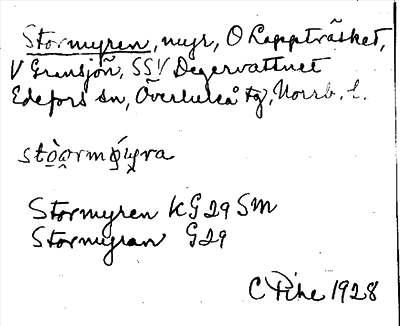 Stormyren, myr, O Lappträsket,
V Gransjön, SSV Degervattnet
Edefors sn, Överluleå tg, Norrb. l.
Stormyren KG29 SM
Stormyran G29
C Pihl 1928